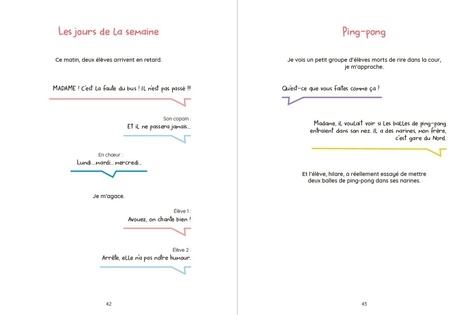 Les jours de la semaine
Ce matin, deux élèves arrivent en retard.
MADAME ! C'est la faute du bus ! Il n'est pas passé !!!
Son copain :
Et il ne passera jamais...
En chœur :
Lundi...mardi...mercredi...
Je m'agace.
Élève 1 :
Avouez, on chante bien !
Élève 2 :
Arrête, elle n'a pas notre humour.
42
Ping-pong
Je vois un petit groupe d'élèves morts de rire dans la cour,
je m'approche.
Qu'est-ce que vous faites comme ça ?
Madame, il voulait voir si les balles de ping-pong
entraient dans son nez. Il a des narines, mon frère,
c'est gare du Nord.
Et l'élève, hilare, a réellement essayé de mettre
deux balles de ping-pong dans ses narines.
43